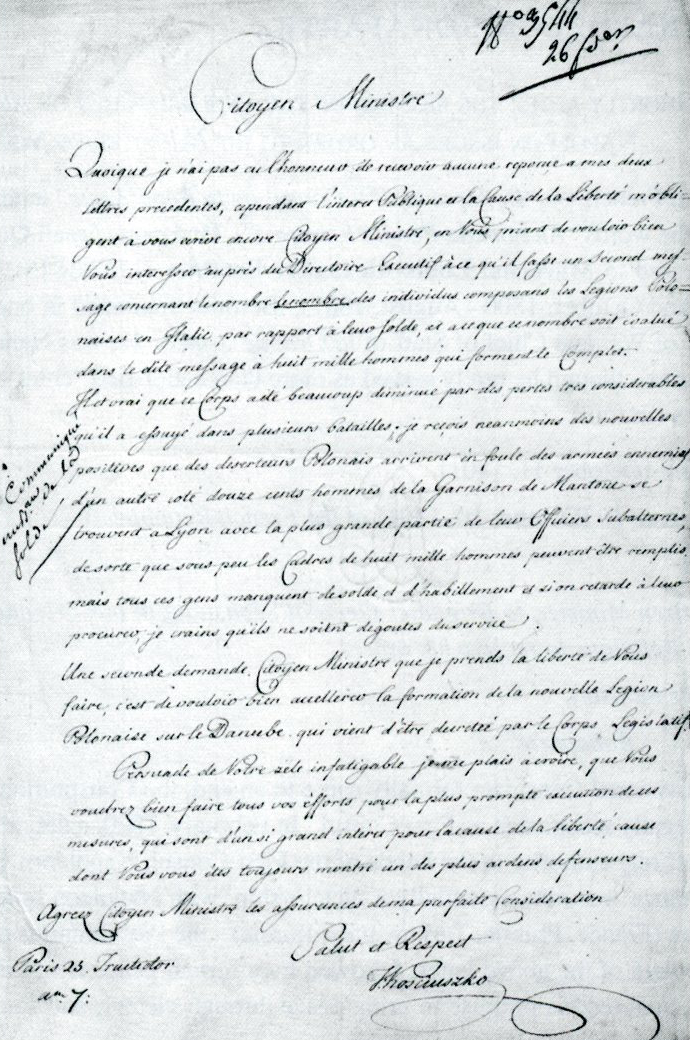 N° 3544
26 f.dor
Citoyen Ministre
Quoique je n'ai pas eu l'honneur de recevoir aucune reponse a mes deux
lettres precedentes, cependant l'interet Publique et la Cause de la Liberté m'obli=
gent à vous ecrire encore Citoyen Ministre, en Vous priant de vouloir bien
Vous interesser auprès du Directoire Executif à ce qu'il fasse un Second mes=
sage concernant le nombre le nombre des individus composans les Legions Polo=
naises en Italie, par rapport à leur solde, et a ce que ce nombre soit évalué
dans le dite message à huit mille hommes qui forment le Complet.
Il est vrai que ce Corps a été beaucoup diminué par des pertes tres considerables
qu'il a essuyé dans plusieurs batailles; je reçois neanmoins des nouvelles
positives que des deserteurs Polonais arrivent en foule des armées ennemies
d'un autre coté douze cents hommes de la Garnison de Mantoue se
trouvent a Lyon avec la plus grande partie de leur Officiers Subalternes,
de sorte que sous peu les Cadres de huit mille hommes peuvent être remplis,
mais tous ces gens manquent de solde et d'habillement et si on retarde à leur
procurer, je crains qu'ils ne soient dégoutes du service.
Une seconde demande, Citoyen Ministre que je prends la liberté de Vous
faire, c'est de vouloir bien accellerer la formation de la nouvelle Legion
Polonaise sur le Danube qui vient d'être decreté par le Corps Legislatif.
Persuade de Votre zele infatigable je me plais à croire, que Vous
voudrez bien faire tous vos éfforts pour la plus prompte execution de ces
mesures, qui sont d'un si grand intéret pour la cause de la liberté, cause
dont Vous vous êtes toujours montré un des plus ardens defenseurs.
Agreez Citoyen Ministre les assurances de ma parfaite Consideration
Salut et Respect
Kosciuszko
Paris 23. Fructidor
an 7:
Communiqué
de la
solde